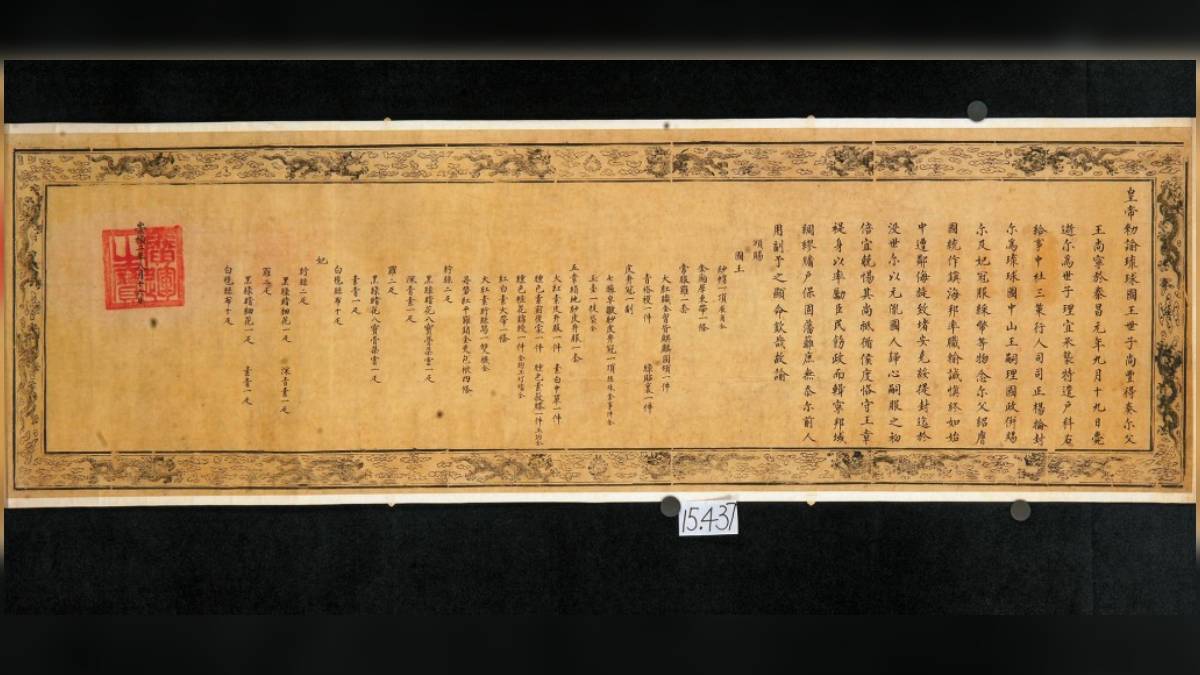 皇帝勑諭琉球國王世子尚豐得奏尓父
王尚寧於泰昌元年九月十九日薨
逝尓為世子理宜承襲特遣戶科右
給事中杜三策行人司司正楊掄封
尓為琉球國中山王嗣理國政併賜
尓及妃冠服綵幣等物念尓父紹膺
國統作鎮海邦率職輸誠慎終如始
中遭鄰海
浸世尓以元
國人歸心嗣服之初
倍宜兢惕其尚祗循侯度恪守王章
褆身以率勤臣民飭政而輯寧邦域
綢繆牖戶保固藩籬庶無忝尓前人
用副予之顯命欽哉故諭
頒賜
國王
紗帽一頂展角全
金廂犀束帶一條
常服羅一套
大紅織金胷背麒麟圓領一件
青褡
一件
綠貼裏一件
皮弁冠一副
七旒皁皺紗皮弁冠一頂旒珠金事件全
玉圭一枝袋全
五章絹地紗皮弁服一套
大紅素皮弁服一件
素白中單一件
纁色素前後裳一件
纁色素蔽膝一件玉鈎全
纁色粧花錦綬一件金鈎玉玎璫全
紅白素大帶一條
大紅素紵絲舃一雙襪全
丹礬紅平羅銷金夾包袱四條
紵絲二疋
黑綠暗花八寶骨朶雲一疋
深青素一疋
羅二疋
黑綠暗花八寶骨朶雲一疋
素青一疋
白氁絲布十疋
妃
紵絲二疋
黑綠暗細花一疋
深青素一疋
羅二疋
黑綠暗細花一疋
素青一疋
白氁絲布十疋
15.437